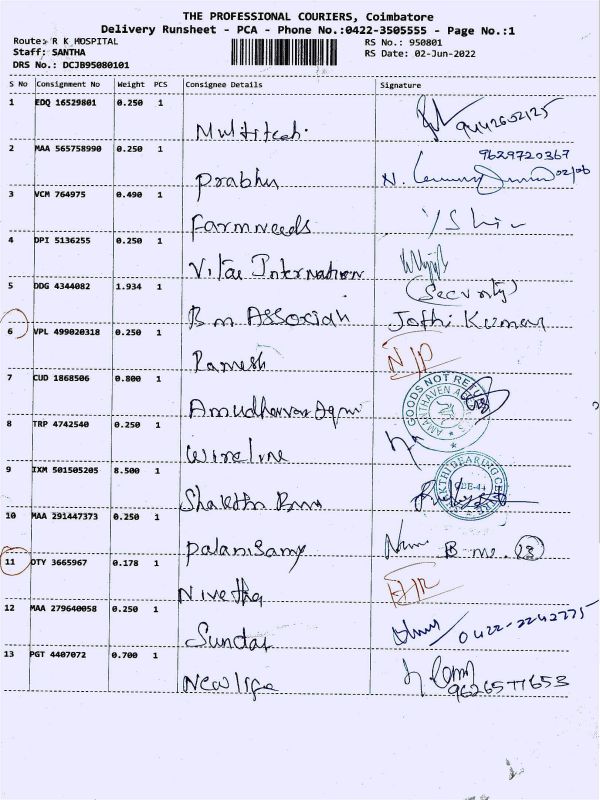 THE PROFESSIONAL COURIERS, Coimbatore
Delivery Runsheet - PCA - Phone No.:0422-3505555 - Page No.:1
Route: R K HOSPITAL RS No.: 950801
Staff: SANTHA RS Date: 02-Jun-2022
DRS No.: DCJB95080101
S No Consignment No Weight PCS Consignee Details Signature
1 EDQ 16529801 0.250 1
Multitech. 9442602125
2 MAA 565758990 0.250 1 9629720367
Prabhu N. 02/06
3 VCM 764975 0.490 1
Farmneeds
4 DPI 5136255 0.250 1
Vitae Internation
5 DDG 4344082 1.934 1 (Security)
B m Associah Jothi Kumar
6 VPL 499020318 0.250 1
Ramesh N/P
7 CUD 1868506 0.800 1 GOODS NOT
Amudhavan Agni
8 TRP 4742540 0.250 1
Wireline
9 IXM 501505205 8.500 1 BEARING CENTRE
Shakthi CBE-44
10 MAA 291447373 0.250 1
Palanisamy
11 OTY 3665967 0.178 1
Nivetha
12 MAA 279640058 0.250 1
Sundar 0422-2242775
13 PGT 4407072 0.700 1
Newlife 9626577653